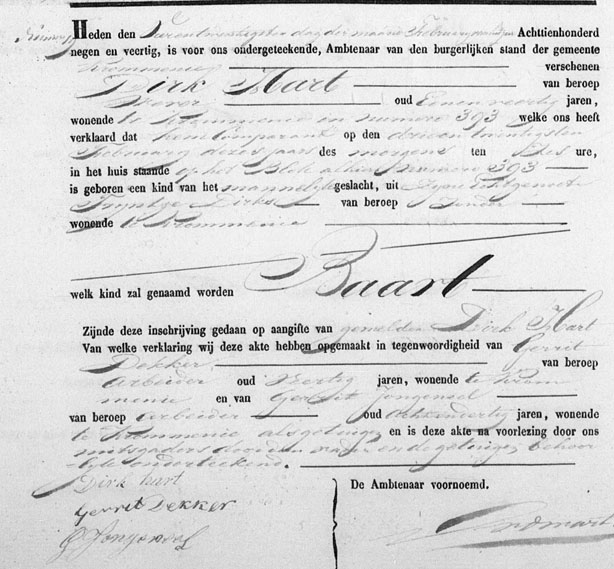 Heden den Vierentwintigsten dag der maand Februarij Achttienhonderd
negen en veertig, is voor ons ondergeteekende, Ambtenaar van den burgerlijken stand der gemeente
Krommenie verschenen
Dirk Hart van beroep
Wever oud Eenenveertig jaren,
wonende te Krommenie nummero 393 welke ons heeft
verklaard dat op den drieentwintigsten
Februarij dezes jaars des morgens ten zes ure,
in het huis staande op het Blok nummero 393
is geboren een kind van het mannelijke geslacht, uit zijne Echtgenoot
Trijntje Dirks van beroep zonder
wonende te Krommenie
Baart
welk kind zal genaamd worden
Zijnde deze inschrijving gedaan op aangifte van gemelden Dirk Hart
Van welke verklaring wij deze akte hebben opgemaakt in tegenwoordigheid van Gerrit
Dekker van beroep
Arbeider oud Veertig jaren, wonende te Krom
menie en van Gerrit Jongensel
van beroep Arbeider oud Achtenveertig jaren, wonende
te Krommenie als getuigen en is deze akte na voorlezing door ons
mitsgaders door den vader en de getuigen behoor
lijk onderteekend.
Dirk hart
De Ambtenaar voornoemd.
Gerrit Dekker
G Jongensel